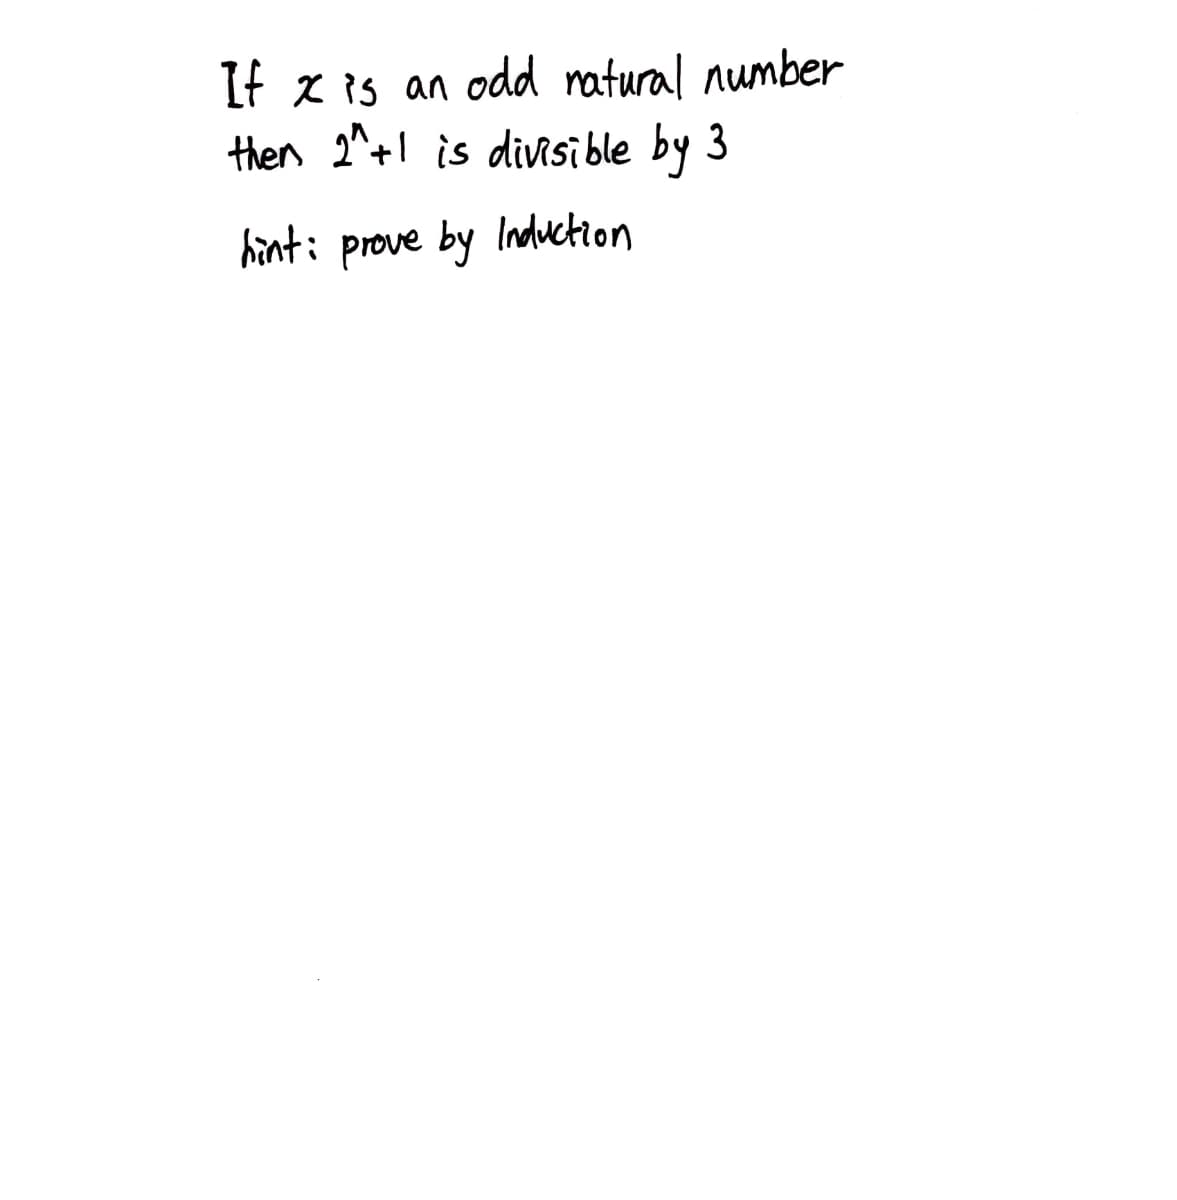 If x is an odd natural number
then 2^n+1 is divisible by 3
hint: prove by Induction